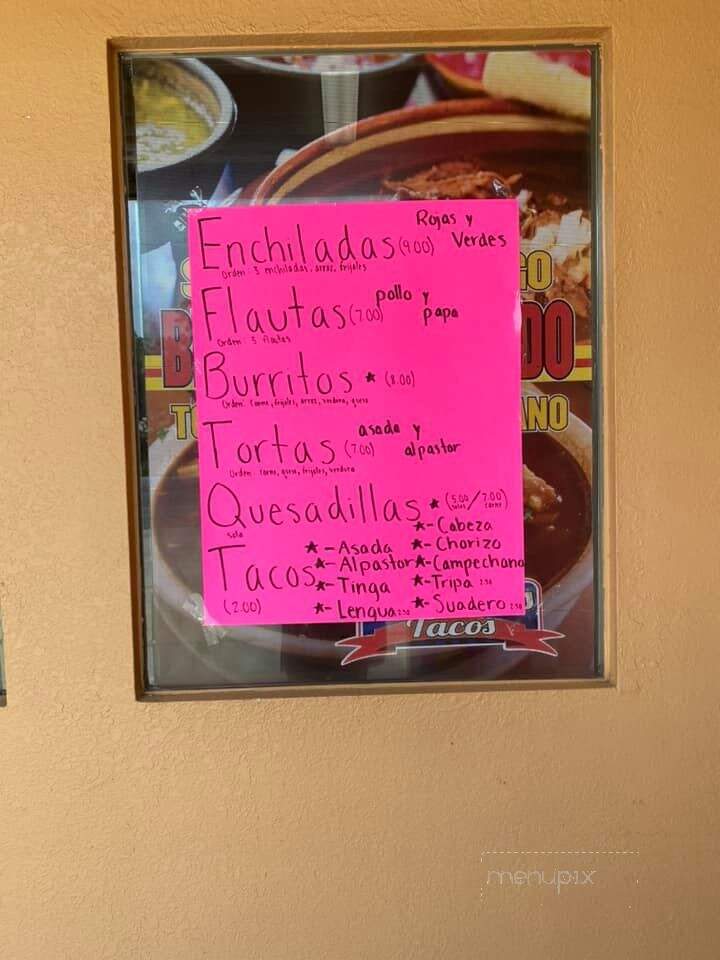 Rojas y
Enchiladas (9.00) Verdes
Orden: 3 enchiladas, arroz, frijoles
Flautas (7.00) pollo y
papa
Orden: 5 flautas
Burritos ★ (8.00)
Orden: Carne, frijoles, arroz, verdura, queso
Tortas (7.00) asada y
alpastor
Orden: carne, queso, frijoles, verdura
Quesadillas ★ (5.00/7.00)
solas carne
sola
Tacos
(2.00)
★-Asada
★-Alpastor
★-Tinga
★-Lengua 2.50
★-Cabeza
★-Chorizo
★-Campechano
★-Tripa 2.50
★-Suadero 2.50
GO
B DO
TO ANO
Tacos
menupix